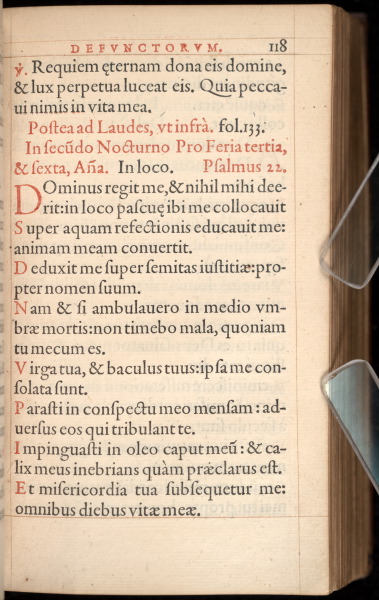 DEFVNCTORVM. 118
℣. Requiem ęternam dona eis domine,
& lux perpetua luceat eis. Quia pecca-
ui nimis in vita mea.
Poſtea ad Laudes, vt infrà. fol.133.
In ſecūdo Nocturno Pro Feria tertia,
& ſexta, Aña. In loco. Pſalmus 22.
DOminus regit me, & nihil mihi dee-
rit: in loco paſcuę ibi me collocauit
Super aquam refectionis educauit me:
animam meam conuertit.
Deduxit me ſuper ſemitas iuſtitiæ: pro-
pter nomen ſuum.
Nam & ſi ambulauero in medio vm-
bræ mortis: non timebo mala, quoniam
tu mecum es.
Virga tua, & baculus tuus: ipſa me con-
ſolata ſunt.
Paraſti in conſpectu meo menſam: ad-
uerſus eos qui tribulant te.
Impinguaſti in oleo caput meū: & ca-
lix meus inebrians quàm præclarus eſt.
Et miſericordia tua ſubſequetur me:
omnibus diebus vitæ meæ.